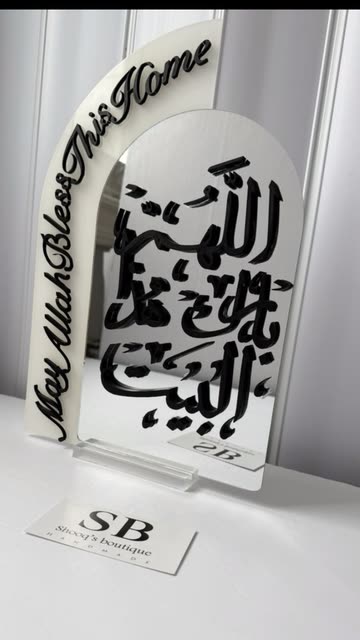 May Allah Bless This Home
اللَّهُمَّ
بارك هذا
البيت
SB
SB
Shooq's boutique
HANDMADE